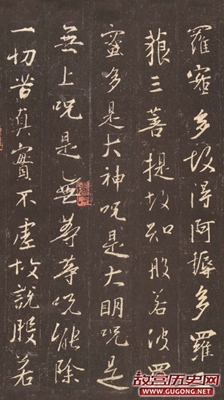 羅蜜多故得阿耨多羅
藐三菩提故知般若波羅
蜜多是大神呪是大明呪是
無上呪是無等等呪能除
一切苦真實不虛故說般若
故宫历史网
www.GUGONG.net